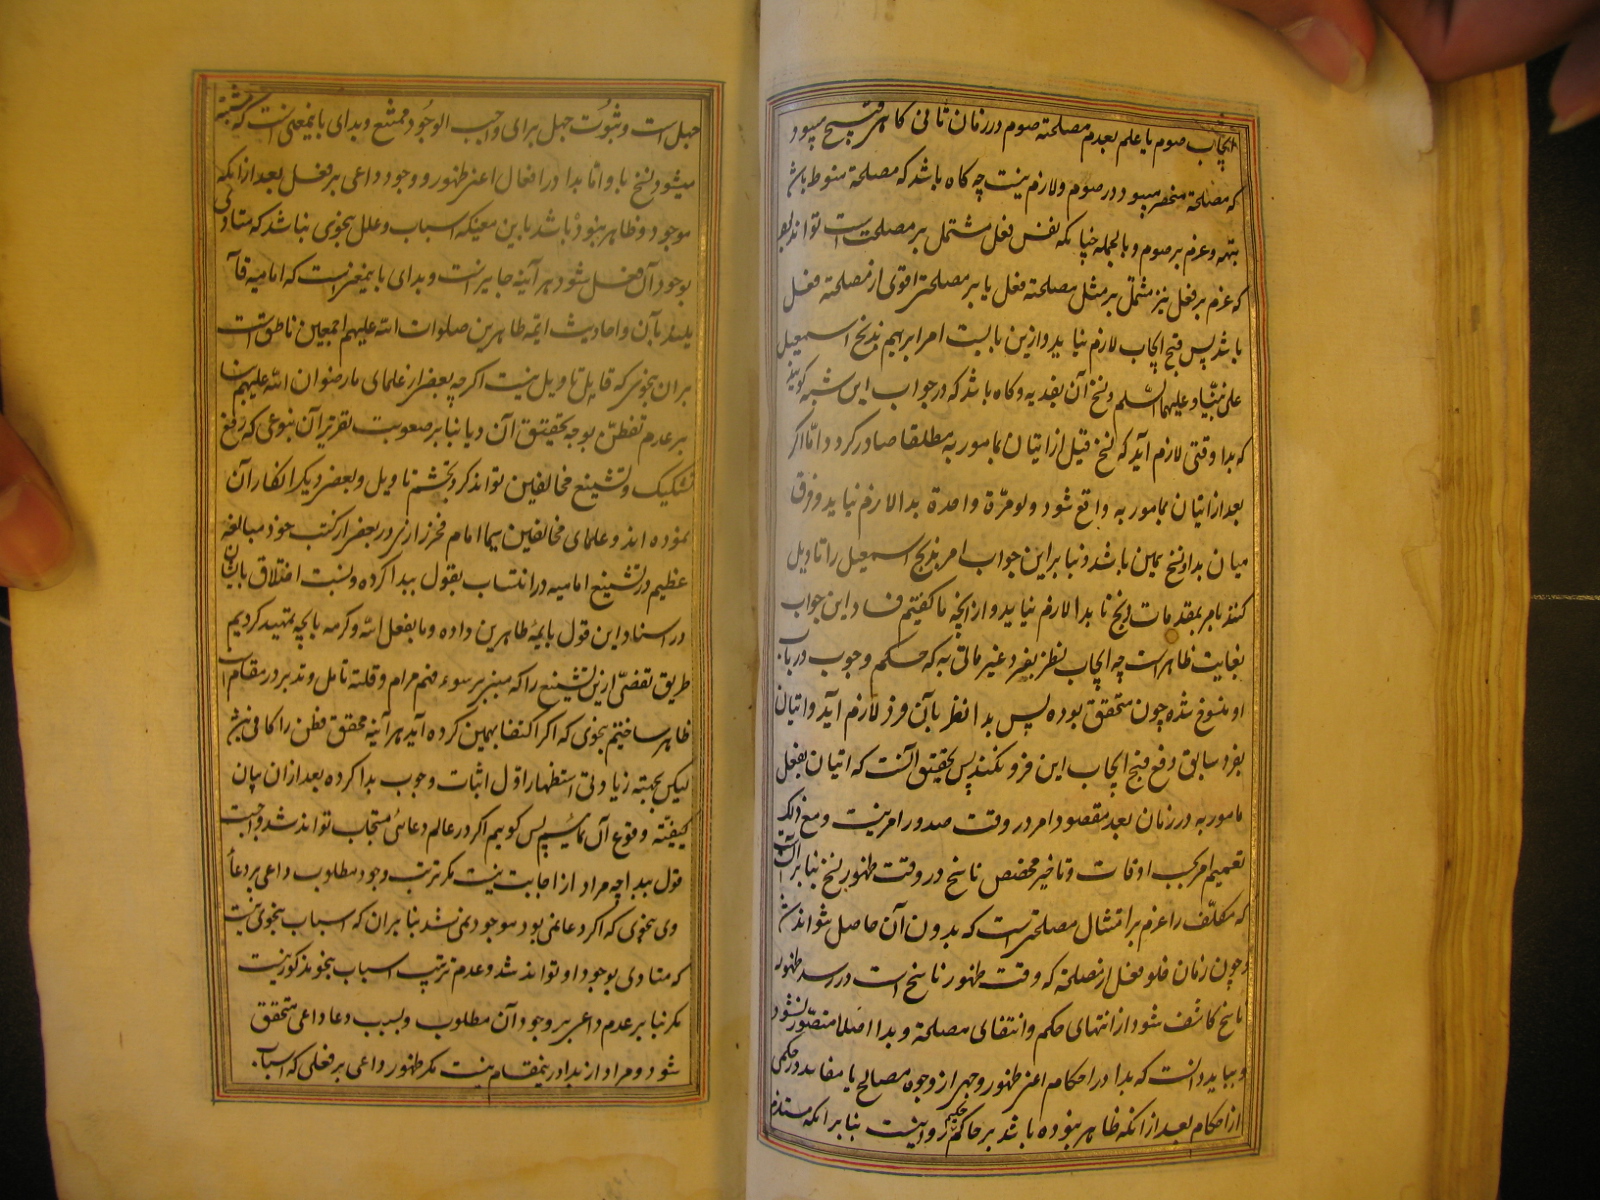 ایجاب صوم یا علم بعدم مصلحة صوم در زمان ثانی کاهی قبیح میبود
که مصلحة منحصر میبود در صوم ولازم نیست چه کاه باشد که مصلحة منوط باشد
بتهیه وعزم بر صوم وبالجمله چنانکه نفس فعل مشتمل بر مصلحت است تواند بود
که عزم بر فعل نیز مشتمل بر مثل مصلحة فعل یا بر مصلحتی اقوی از مصلحة فعل
باشد پس قبح ایجاب لازم نیاید وازین بابست امر ابرهیم بذبح اسمعیل
علی نبینا وعلیهما السلم ونسخ آن بفدیه وکاه باشد که در جواب این شبه کویند
که بدا وقتی لازم آید که نسخ قبل از اتیان بمامور به مطلقا صادر کردد اما اکر
بعد از اتیان بمامور به واقع شود ولو مرّة واحدة بدا لازم نیاید وفرق
میان بدا ونسخ همین باشد وبنا براین جواب امر بذبح اسمعیل را تاویل
کنند بامر بمقدمات ذبح تا بدا لازم نیاید واز آنچه ما کفتیم فساد این جواب
بغایت ظاهرست چه ایجاب نظر بفرد غیر ماتی به که حکم وجوب در باب
او منسوخ شده چون متحقق بوده پس بدا نظر بآن فرد لازم آید واتیان
بفرد سابق دفع قبح ایجاب این فرد نکند پس تحقیق آنست که اتیان بفعل
مامور به در زمان بعد مقصود امر در وقت صدور امر نیست ومع ذلک
تعمیم امر بحسب اوقات وتاخیر مخصص ناسخ در وقت ظهور نسخ بنا بر آنست
که مکلف را عزم بر امتثال مصلحتی است که بدون آن حاصل نتواند شد
وچون زمان خلو فعل از مصلحة که وقت ظهور ناسخ است در رسد ظهور
ناسخ کاشف شود از انتهای حکم وانتفای مصلحة وبدا اصلا متصور نشود
وبباید دانست که بدا در احکام اعنی ظهور وجهی از وجوه مصالح یا مفاسد در حکمی
از احکام بعد از انکه ظاهر نبوده باشد بر حاکم حکیم روا نیست بنا برانکه مستلزم
جهل است وثبوت جهل برای واجب الوجود ممتنع وبدای باینمعنی است که مشتبه
میشود بنسخ یا واما بدا در افعال اعنی ظهور ووجود داعی بر فعل بعد از انکه
موجود وظاهر نبوده باشد باین معنیکه اسباب وعلل بنحوی نباشد که متادی
بوجود آن فعل شود هر آینه جایز است وبدای باینمعنی است که امامیه قا
یلند بآن واحادیث ائمه طاهرین صلوات الله علیهم اجمعین ناطق است
بران بنحوی که قابل تاویل نیست اکرچه بعضی از علمای ما رضوان الله علیهم بنا
بر عدم تفطن بوجه تحقیق آن ویا بنا بر صعوبت تقریر آن بنوعی که رفع
تشکیک وتشنیع مخالفین تواند کرد تجشم تاویل وبعضی دیکر انکار آن
نموده اند وعلمای مخالفین سیما امام فخر رازی در بعضی از کتب خود مبالغه
عظیم در تشنیع امامیه در انتساب بقول ببدا کرده ونسبت اختلاق بایشان
در اسناد این قول بایمهٔ طاهرین داده وما بفعل الله وکرمه بانچه تمهید کردیم
طریق تفصی ازین تشنیع را که مبنی بر سوء فهم مرام وقلت تامل وتدبر در مقام است
ظاهر ساختیم بنحوی که اکر اکتفا بهمین کرده آید هر آینه محقق فطن را کافی باشد
لیکن بجهته زیادتی استظهار اول اثبات وجوب بدا کرده بعد ازان بیان
کیفیّة وقوع آن نماییم پس کوییم اکر در عالم دعائی مستجاب تواند شد واجبست
قول ببدا چه مراد از اجابت نیست مکر ترتب وجود مطلوب داعی بر دعاء
وی بنحوی که اکر دعا نمی بود موجود نمی شد بنا بران که اسباب بنحوی نیست
که متادی بوجود او تواند شد وعدم ترتیب اسباب بنحو مذکور نیست
مکر بنا بر عدم داعی بر وجود آن مطلوب وبسبب دعا داعی متحقق
شود ومراد از بدا درینمقام نیست مکر ظهور داعی بر فعلی که اسبا